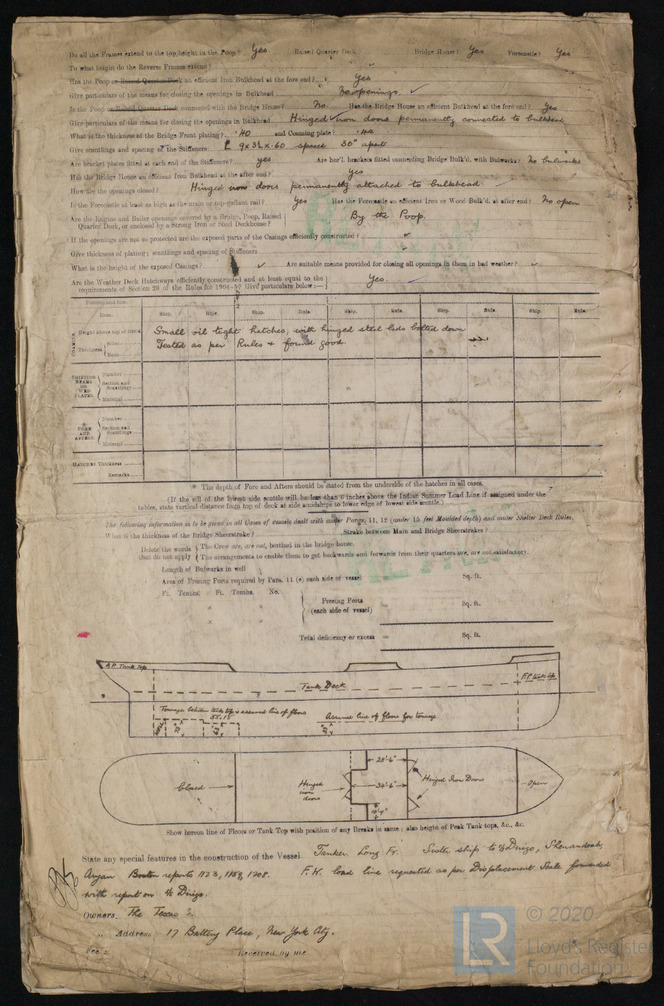 Do all the Frames extend to the top height in the Poop? Yes Raised Quarter Deck Bridge House? Yes Forecastle? Yes
To what height do the Reverse Frames extend?
Has the Poop or Raised Quarter Deck an efficient Iron Bulkhead at the fore end? Yes
Give particulars of the means for closing the openings in Bulkhead No openings. ✓
Is the Poop or Raised Quarter Deck connected with the Bridge House? No Has the Bridge House an efficient Bulkhead at the fore end? Yes
Give particulars of the means for closing the openings in Bulkhead Hinged iron doors permanently connected to bulkhead
What is the thickness of the Bridge Front plating? .40 and Coaming plate? .44
Give scantlings and spacing of the Stiffeners 9 x 3½ x .60 spaced 30" apart
Are bracket plates fitted at each end of the Stiffeners? yes Are hor'l. brackets fitted connecting Bridge Bulk'd. with Bulwarks? No bulwarks
Has the Bridge House an efficient Iron Bulkhead at the after end? Yes
How are the openings closed? Hinged iron doors permanently attached to bulkhead
Is the Forecastle at least as high as the main or top-gallant rail? Yes Has the Forecastle an efficient Iron or Wood Bulk'd. at after end? No open
Are the Engine and Boiler openings covered by a Bridge, Poop, Raised Quarter Deck, or enclosed by a Strong Iron or Steel Deckhouse? By the Poop.
If the openings are not so protected are the exposed parts of the Casings efficiently constructed? ✓
Give thickness of plating; scantlings and spacing of Stiffeners
What is the height of the exposed Casings? ✓ Are suitable means provided for closing all openings in them in bad weather? ✓
Are the Weather Deck Hatchways efficiently constructed and at least equal to the requirements of Section 29 of the Rules for 1904-5? Give particulars below:— Yes.
Item. Ship. Rule. Ship. Rule. Ship. Rule. Ship. Rule. Ship. Rule.
COAMINGS Height above top of Deck Small oil tight hatches, with hinged steel lids bolted down
Thickness Sides Ends Tested as per Rules & found good
SHIFTING BEAMS OR WEB PLATES Number Section and Scantlings Material
* FORE AND AFTERS. Number Section and Scantlings Material
HATCHES Thickness
Remarks
* The depth of Fore and Afters should be stated from the underside of the hatches in all cases.
(If the sill of the lowest side scuttle will be less than 6 inches above the Indian Summer Load Line if assigned under the tables, state vertical distance from top of deck at side amidships to lower edge of lowest side scuttle.)
The following information is to be given in all Cases of vessels dealt with under Paras. 11, 12 (under 15 feet Moulded depth) and under Shelter Deck Rules.
What is the thickness of the Bridge Sheerstrake? Strake between Main and Bridge Sheerstrakes?
Delete the words that do not apply { The Crew are, are not, berthed in the bridge house.
The arrangements to enable them to get backwards and forwards from their quarters are, are not satisfactory.
Length of Bulwarks in well
Area of Freeing Ports required by Para. 11 (e) each side of vessel Sq. ft.
Ft. Tenths Ft. Tenths No.
x
x
Freeing Ports (each side of vessel) Sq. ft.
Total deficiency or excess = Sq. ft.
A.P. Tank top
F.P. tank top
Tank Deck
Tonnage between tank top & assumed line of floors
Assumed line of floors for tonnage
Closed
Hinged iron doors
Hinged Iron Doors
Open
Show hereon line of Floors or Tank Top with position of any Breaks in same; also height of Peak Tank tops, &c., &c.
State any special features in the construction of the Vessel
Tanker Long Fr. Sister ship to Dirigo, Shenandoah
Boston reports 1123, 1168, 1208. F.W. load line requested as per Displacement Scale forwarded
with report on Dirigo.
Owners The Texas Co.
" Address 17 Battery Place, New York City.
Fee £ Received by me
LR
© 2020
Lloyd's Register
Foundation